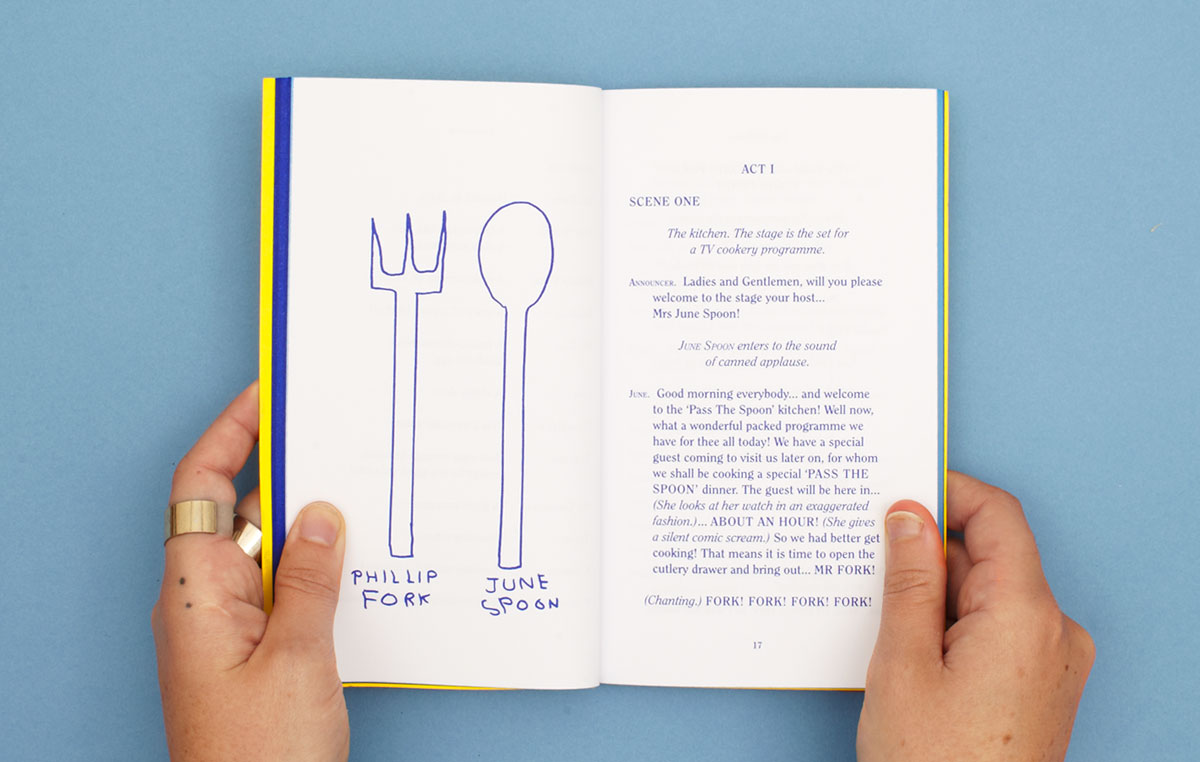 PHILLIP
FORK
JUNE
SPOON
ACT I
SCENE ONE
The kitchen. The stage is the set for
a TV cookery programme.
Announcer. Ladies and Gentlemen, will you please
welcome to the stage your host...
Mrs June Spoon!
June Spoon enters to the sound
of canned applause.
June. Good morning everybody... and welcome
to the ‘Pass The Spoon’ kitchen! Well now,
what a wonderful packed programme we
have for thee all today! We have a special
guest coming to visit us later on, for whom
we shall be cooking a special ‘PASS THE
SPOON’ dinner. The guest will be here in...
(She looks at her watch in an exaggerated
fashion.)... ABOUT AN HOUR! (She gives
a silent comic scream.) So we had better get
cooking! That means it is time to open the
cutlery drawer and bring out... MR FORK!
(Chanting.) FORK! FORK! FORK! FORK!
17